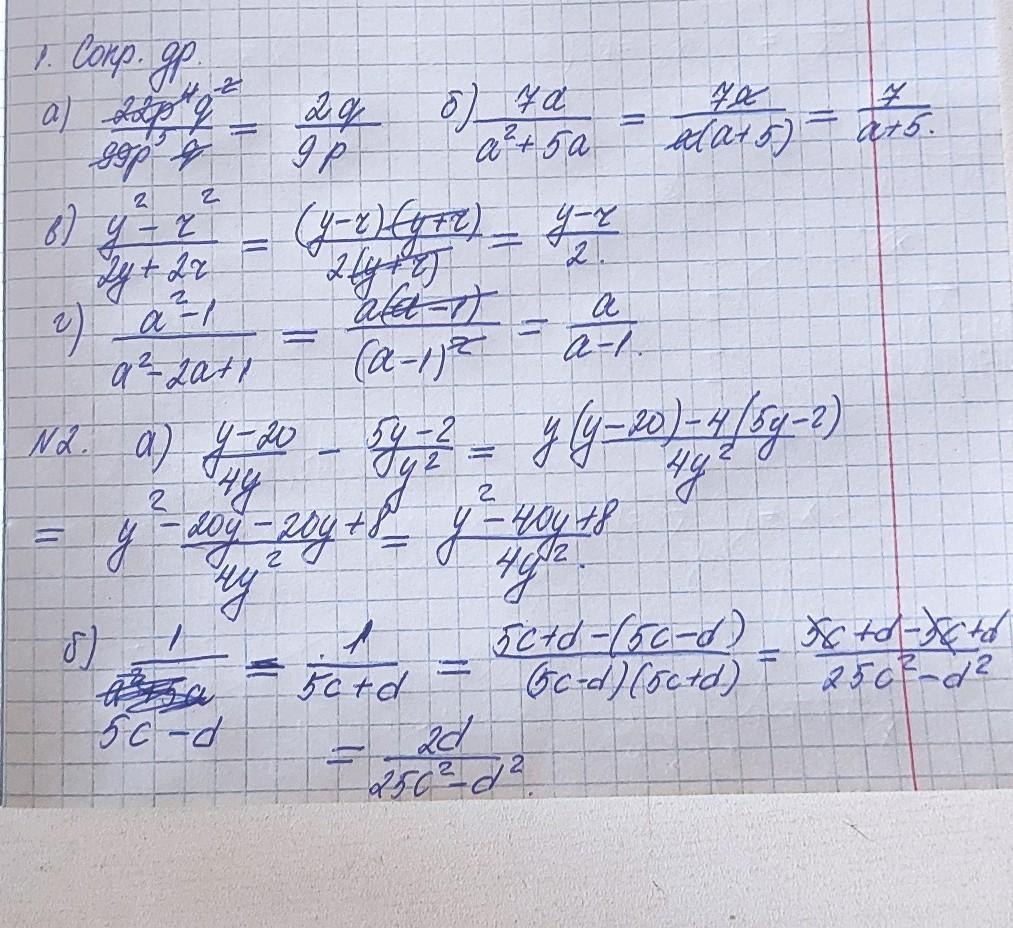 1. Сокр. др.
а) 22p⁴q²/99p⁵q = 2q/9p б) 7a/(a²+5a) = 7a/(a(a+5)) = 7/(a+5).
в) (y²-z²)/(2y+2z) = (y-z)(y+z)/(2(y+z)) = (y-z)/2.
г) (a²-1)/(a²-2a+1) = a(a-1)/(a-1)² = a/(a-1).
N2. а) (y-20)/4y - (5y-2)/y² = (y(y-20)-4(5y-2))/4y²
= (y²-20y-20y+8)/4y² = (y²-40y+8)/4y².
б) 1/(5c-d) - 1/(5c+d) = (5c+d-(5c-d))/((5c-d)(5c+d)) = (5c+d-5c+d)/(25c²-d²)
= 2d/(25c²-d²).